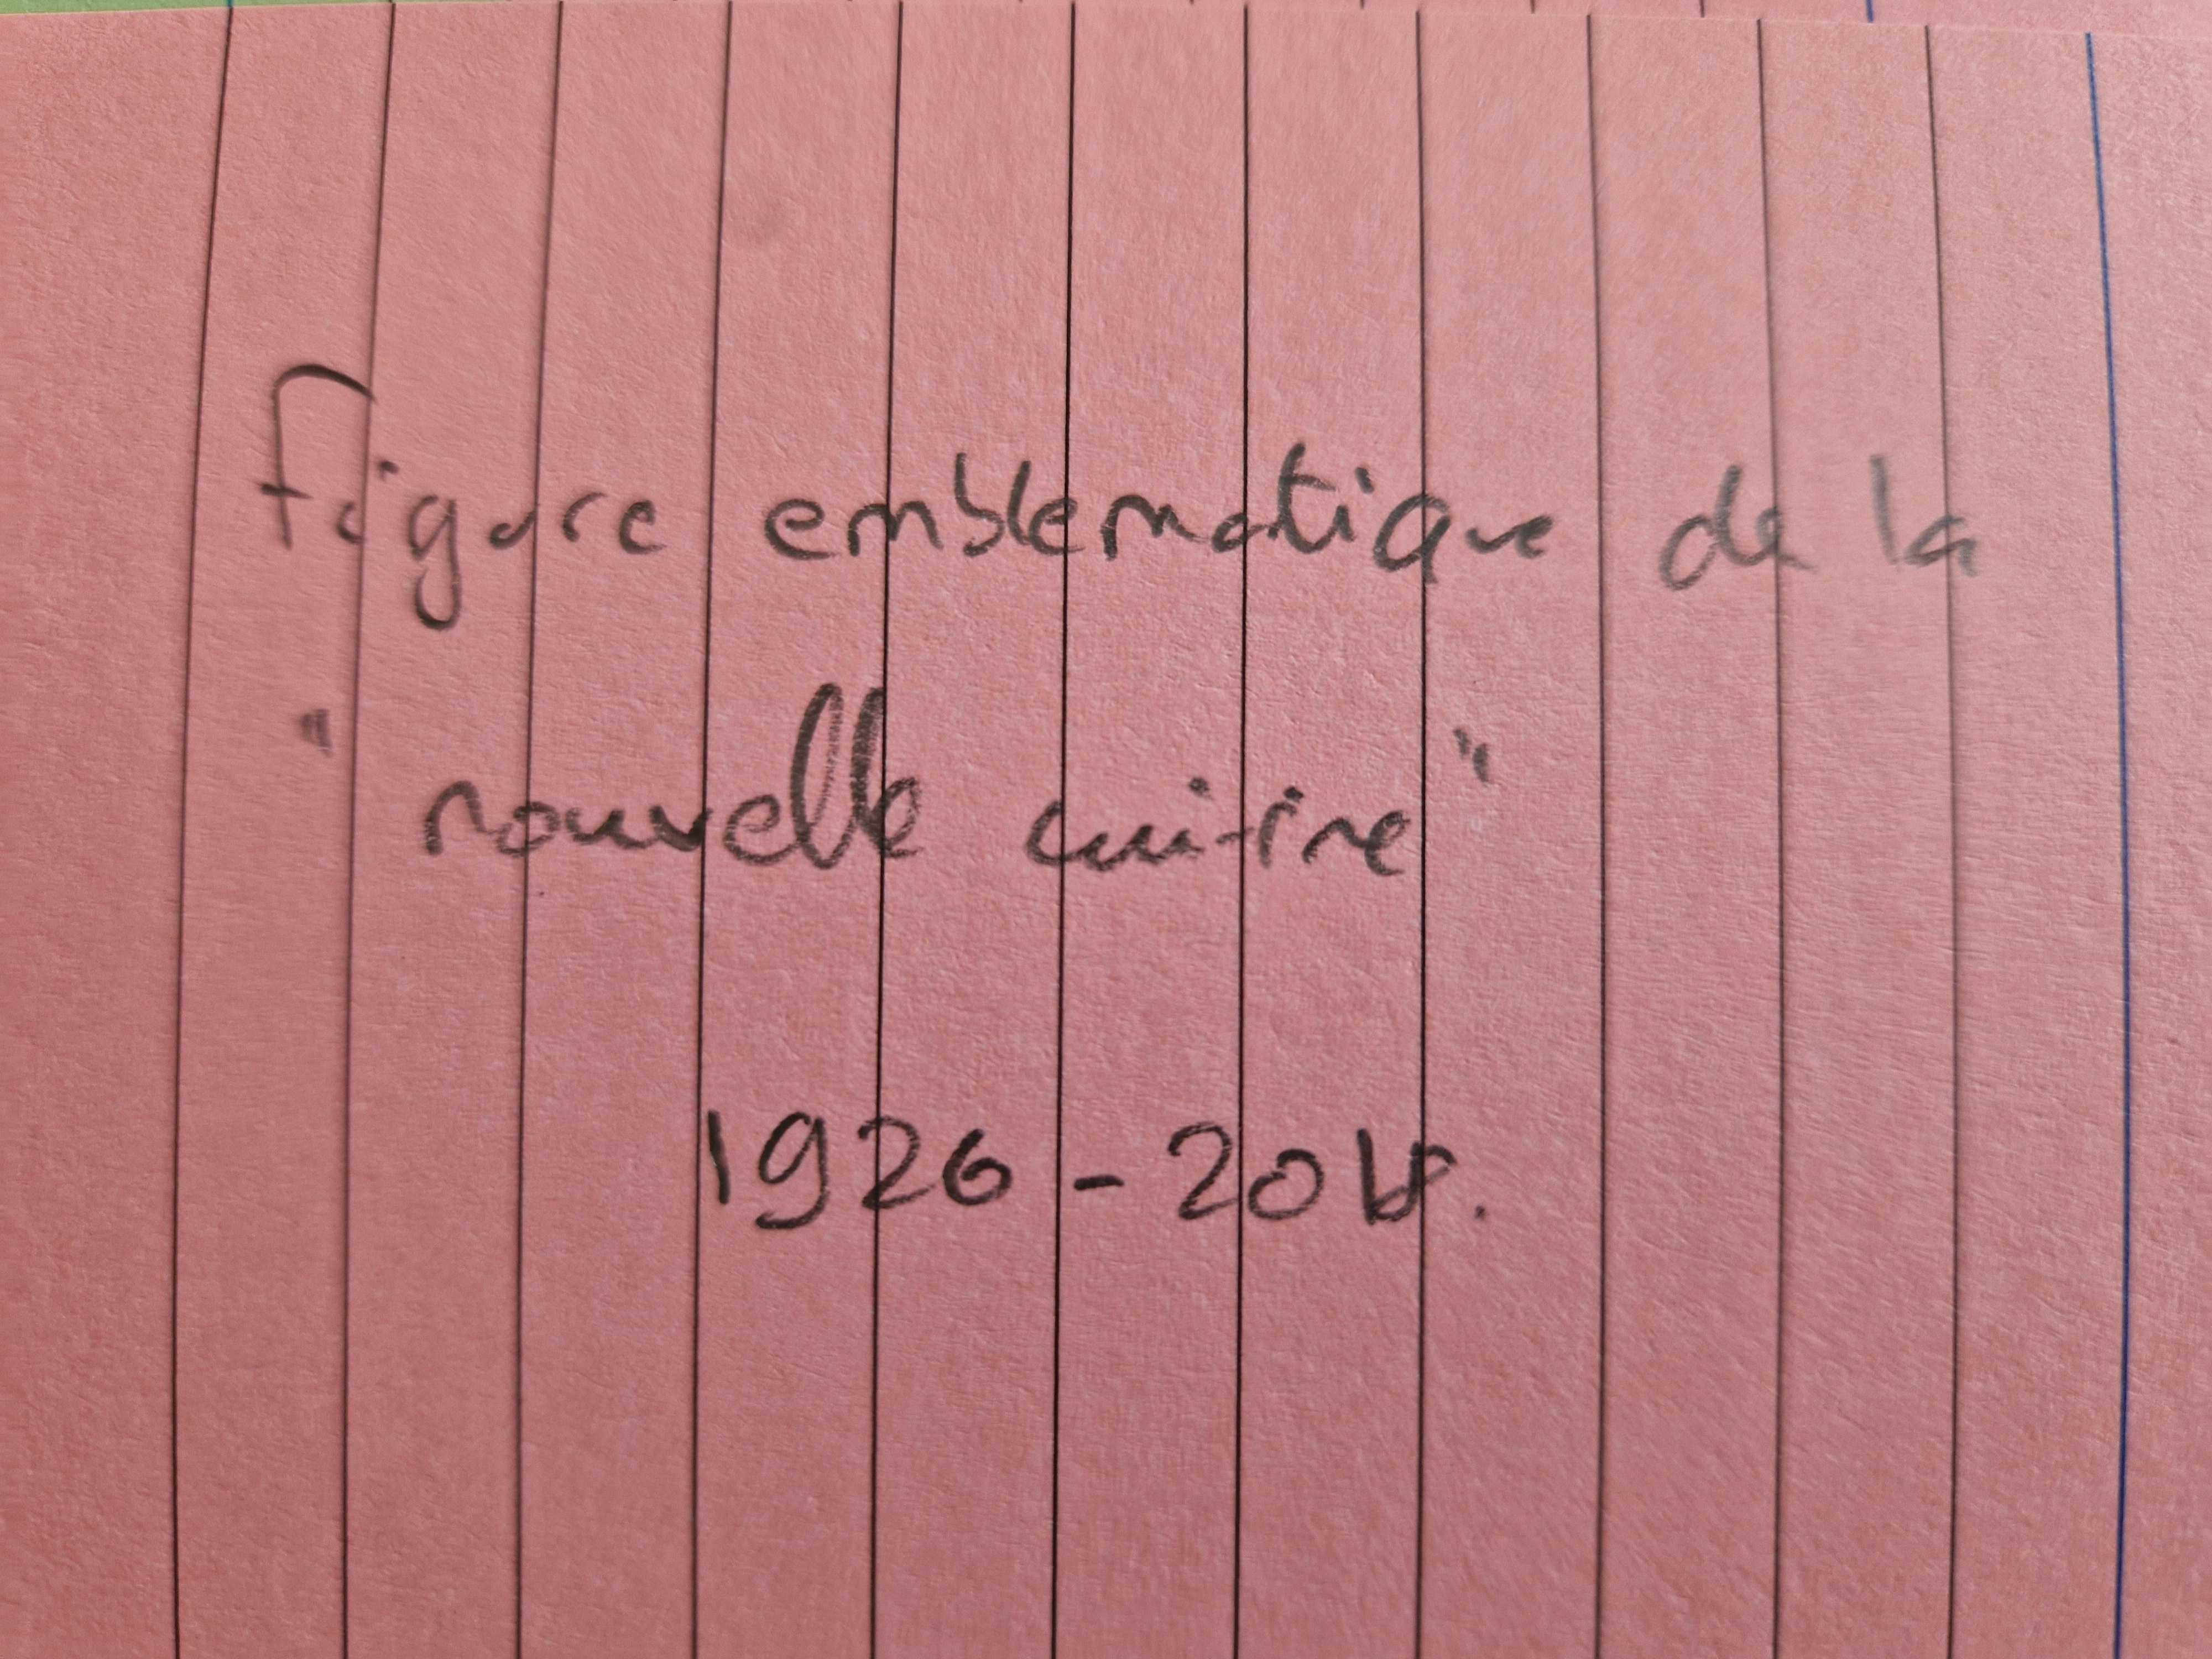 Figure emblematique de la
"nouvelle cuisine"
1926 - 2018.